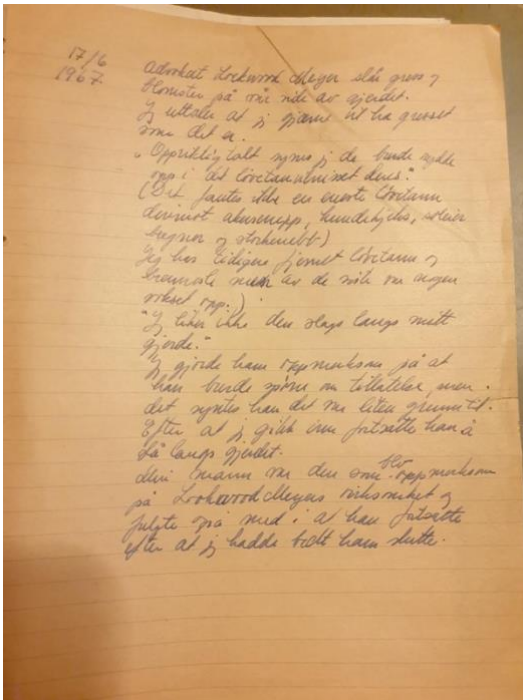 17/6
1967.
Advokat Lockwood Meyer slår gress og
blomster på vår side av gjerdet.
Jeg uttaler at jeg gjerne vil ha gresset
som det er.
"Oppriktig talt synes jeg de burde rydde
opp i det løvetannveniset deres."
(Det fantes ikke en eneste løvetann
derimot akeleie, hundekjeks, soleier
bregner og storkenebb)
Jeg har tidligere fjernet løvetann og
brennesle men av de siste var nogen
vokset opp.)
"Jeg liker ikke den slags langs mitt
gjerde."
Jeg gjorde ham oppmerksom på at
han burde spørre om tillatelse, men
det syntes han det var liten grunn til.
Efter at jeg gikk inn fortsatte han å
slå langs gjerdet.
Min mann var den som blev oppmerksom
på Lockwood Meyers virksomhet og
fulgte også med i at han fortsatte
efter at jeg hadde bedt ham slutte.